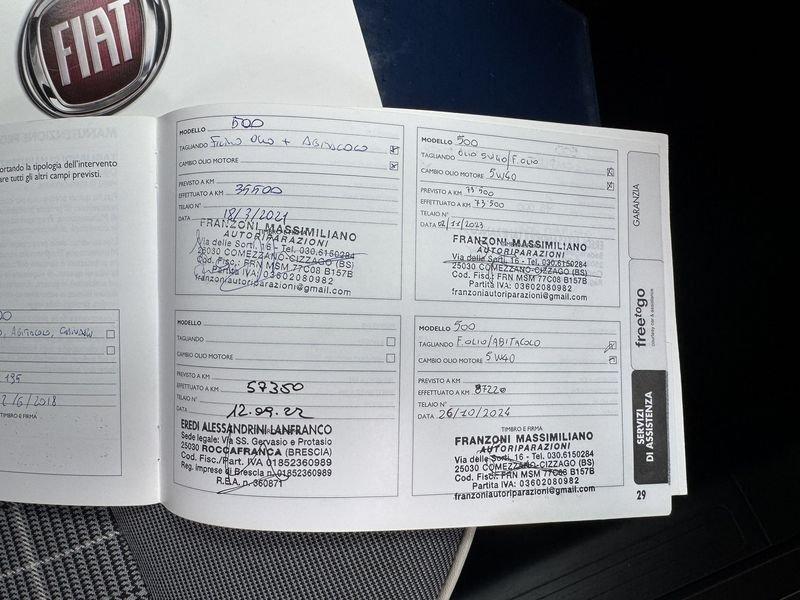 FIAT
MANUTENZIONE
ortando la tipologia dell'intervento
are tutti gli altri campi previsti.
O, AGITACOLO,
195
2/6/2018
TIMBRO E FIRMA
MODELLO 500
TAGLIANDO FILTRO OLIO + ABITACOLO
CAMBIO OLIO MOTORE
PREVISTO A KM
EFFETTUATO A KM 39500
TELAIO N°
DATA 18/3/2021
FRANZONI MASSIMILIANO
AUTORIPARAZIONI
Via delle Sorti, 16 - Tel. 030.6150284
25030 COMEZZANO-CIZZAGO (BS)
Cod. Fisc.: FRN MSM 77C08 B157B
Partita IVA: 03602080982
franzoniautoriparazioni@gmail.com
MODELLO
TAGLIANDO
CAMBIO OLIO MOTORE
PREVISTO A KM
EFFETTUATO A KM 57350
TELAIO N°
DATA 12.09.22
EREDI ALESSANDRINI LANFRANCO
Sede legale: Via SS. Gervasio e Protasio
25030 ROCCAFRANCA (BRESCIA)
Cod. Fisc./Part. IVA 01852360989
Reg. imprese di Brescia n. 01852360989
R.E.A. n. 360871
MODELLO 500
TAGLIANDO OLIO 5W40/F.OLIO
CAMBIO OLIO MOTORE 5W40
PREVISTO A KM 73500
EFFETTUATO A KM 73500
TELAIO N°
DATA 02/11/2023
FRANZONI MASSIMILIANO
AUTORIPARAZIONI
Via delle Sorti, 16 - Tel. 030.6150284
25030 COMEZZANO-CIZZAGO (BS)
Cod. Fisc.: FRN MSM 77C08 B157B
Partita IVA: 03602080982
franzoniautoriparazioni@gmail.com
MODELLO 500
TAGLIANDO F.OLIO/ABITACOLO
CAMBIO OLIO MOTORE 5W40
PREVISTO A KM
EFFETTUATO A KM 87220
TELAIO N°
DATA 26/10/2024
TIMBRO E FIRMA
FRANZONI MASSIMILIANO
AUTORIPARAZIONI
Via delle Sorti, 16 - Tel. 030.6150284
25030 COMEZZANO-CIZZAGO (BS)
Cod. Fisc.: FRN MSM 77C08 B157B
Partita IVA: 03602080982
franzoniautoriparazioni@gmail.com
GARANZIA
freetogo
courtesy car & assistance
SERVIZI
DI ASSISTENZA
29